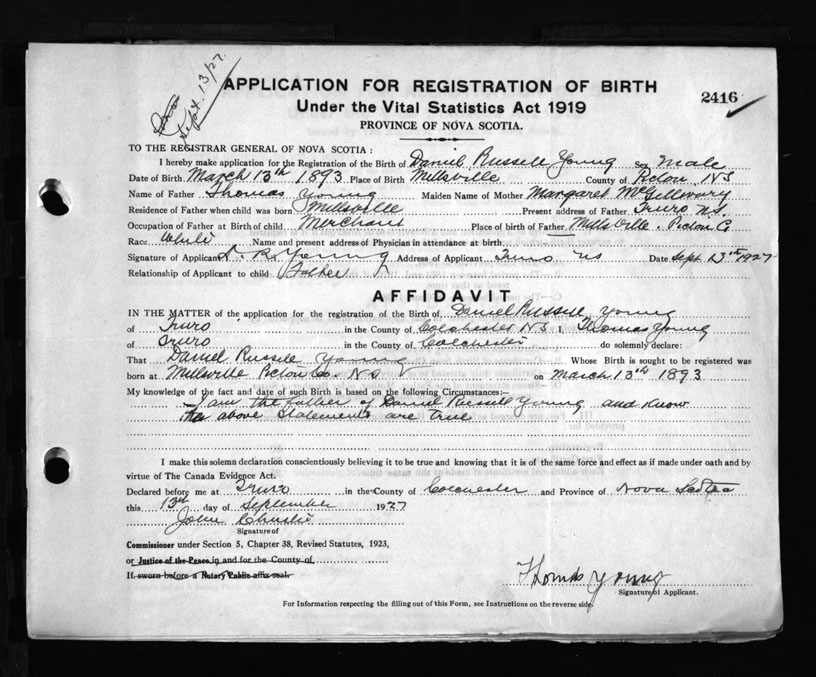 Sept. 13/27.
APPLICATION FOR REGISTRATION OF BIRTH
2416
Under the Vital Statistics Act 1919
PROVINCE OF NOVA SCOTIA.
TO THE REGISTRAR GENERAL OF NOVA SCOTIA :
I hereby make application for the Registration of the Birth of Daniel Russell Young sex Male
Date of Birth March 13th 1893 Place of Birth Millsville County of Pictou NS
Name of Father Thomas Young Maiden Name of Mother Margaret McGillivary
Residence of Father when child was born Millsville Present address of Father Truro N.S.
Occupation of Father at Birth of Child Merchant Place of birth of Father Millsville Pictou C
Race White Name and present address of Physician in attendance at birth
Signature of Applicant D. R. Young Address of Applicant Truro NS Date Sept 13th 1927
Relationship of Applicant to child Father
AFFIDAVIT
IN THE MATTER of the application for the registration of the Birth of Daniel Russell Young
of Truro in the County of Colchester N S I, Thomas Young
of Truro in the County of Colchester do solemnly declare:
That Daniel Russell Young Whose Birth is sought to be registered was
born at Millsville Pictou Co. N S on March 13th 1893
My knowledge of the fact and date of such Birth is based on the following Circumstances:—
I am the father of Daniel Russell Young and know
the above statements are true
I make this solemn declaration conscientiously believing it to be true and knowing that it is of the same force and effect as if made under oath and by
virtue of The Canada Evidence Act.
Declared before me at Truro in the County of Colchester and Province of Nova Scotia
this 13th day of September 1927
John Christie
Signature of
Commissioner under Section 5, Chapter 38, Revised Statutes, 1923,
or Justice of the Peace in and for the County of
If sworn before a Notary Public affix seal.
Thomas Young
Signature of Applicant.
For Information respecting the filling out of this Form, see Instructions on the reverse side.